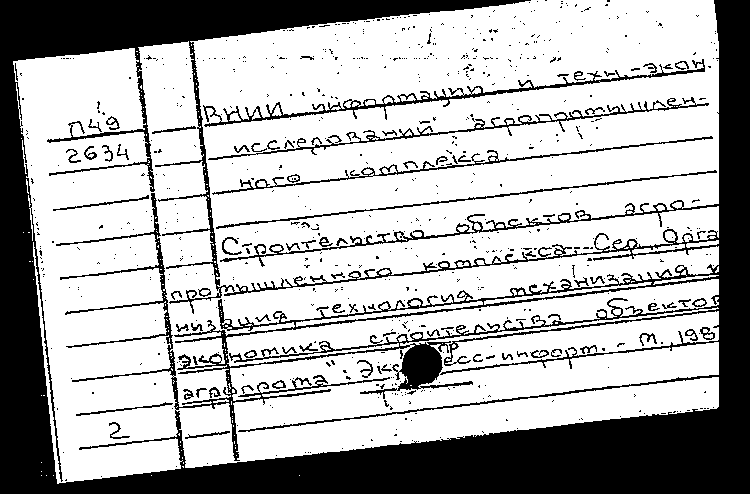 П49
2634
ВНИИ информации и техн.-экон.
исследований агропромышлен-
ного комплекса.
Строительство объектов агро-
промышленного комплекса: Сер. „Орга
низация, технология, механизация и
экономика строительства объектов
агропрома": Экспресс-информ. - М., 198
2